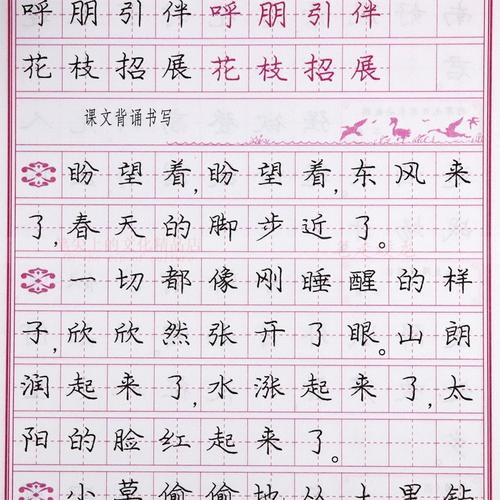 呼朋引伴呼朋引伴
花枝招展花枝招展
课文背诵书写
盼望着,盼望着,东风来
了,春天的脚步近了。
一切都像刚睡醒的样
子,欣欣然张开了眼。山朗
润起来了,水涨起来了,太
阳的脸红起来了。
小草偷偷地从土里钻